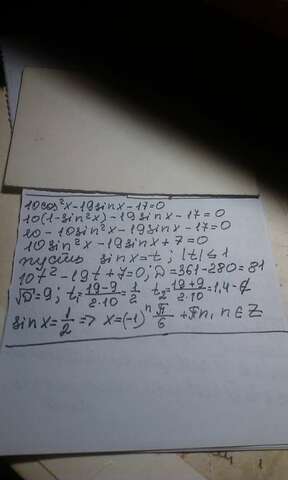 10cos²x-19sinx-17=0
10(1-sin²x)-19sinx-17=0
10-10sin²x-19sinx-17=0
10sin²x-19sinx+7=0
пусть sinx=t; |t|≤1
10t²-19t+7=0; D=361-280=81
√D=9; t₁=(19-9)/(2·10)=1/2 t₂=(19+9)/(2·10)=1,4-∉
sinx=1/2 => x=(-1)ⁿ π/6 +πn, n∈Z